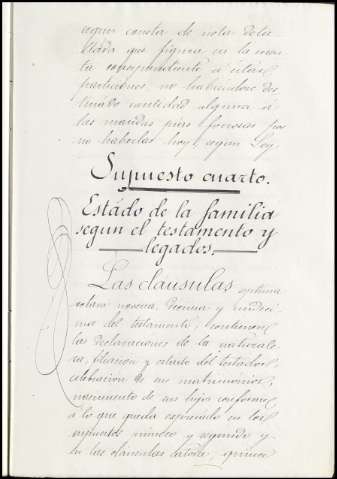 segun consta de nota deta
llada que figura en la cuen
ta correspondiente á útiles
particiones, no habiendose des
tinado cantidad alguna á
las mandas pias forzosas por
no haberlas hoy, segun Ley.
Supuesto cuarto.
Estado de la familia
segun el testamento y
legados.
Las clausulas septima
octava novena, decima y undeci
ma del testamento, contienen
las declaraciones de la naturale
za, filiacion y estado del testador,
celebracion de sus matrimonios,
nacimiento de sus hijos conforme
á lo que queda expresado en los
supuestos primero y segundo y
en las clausulas catorce, quince